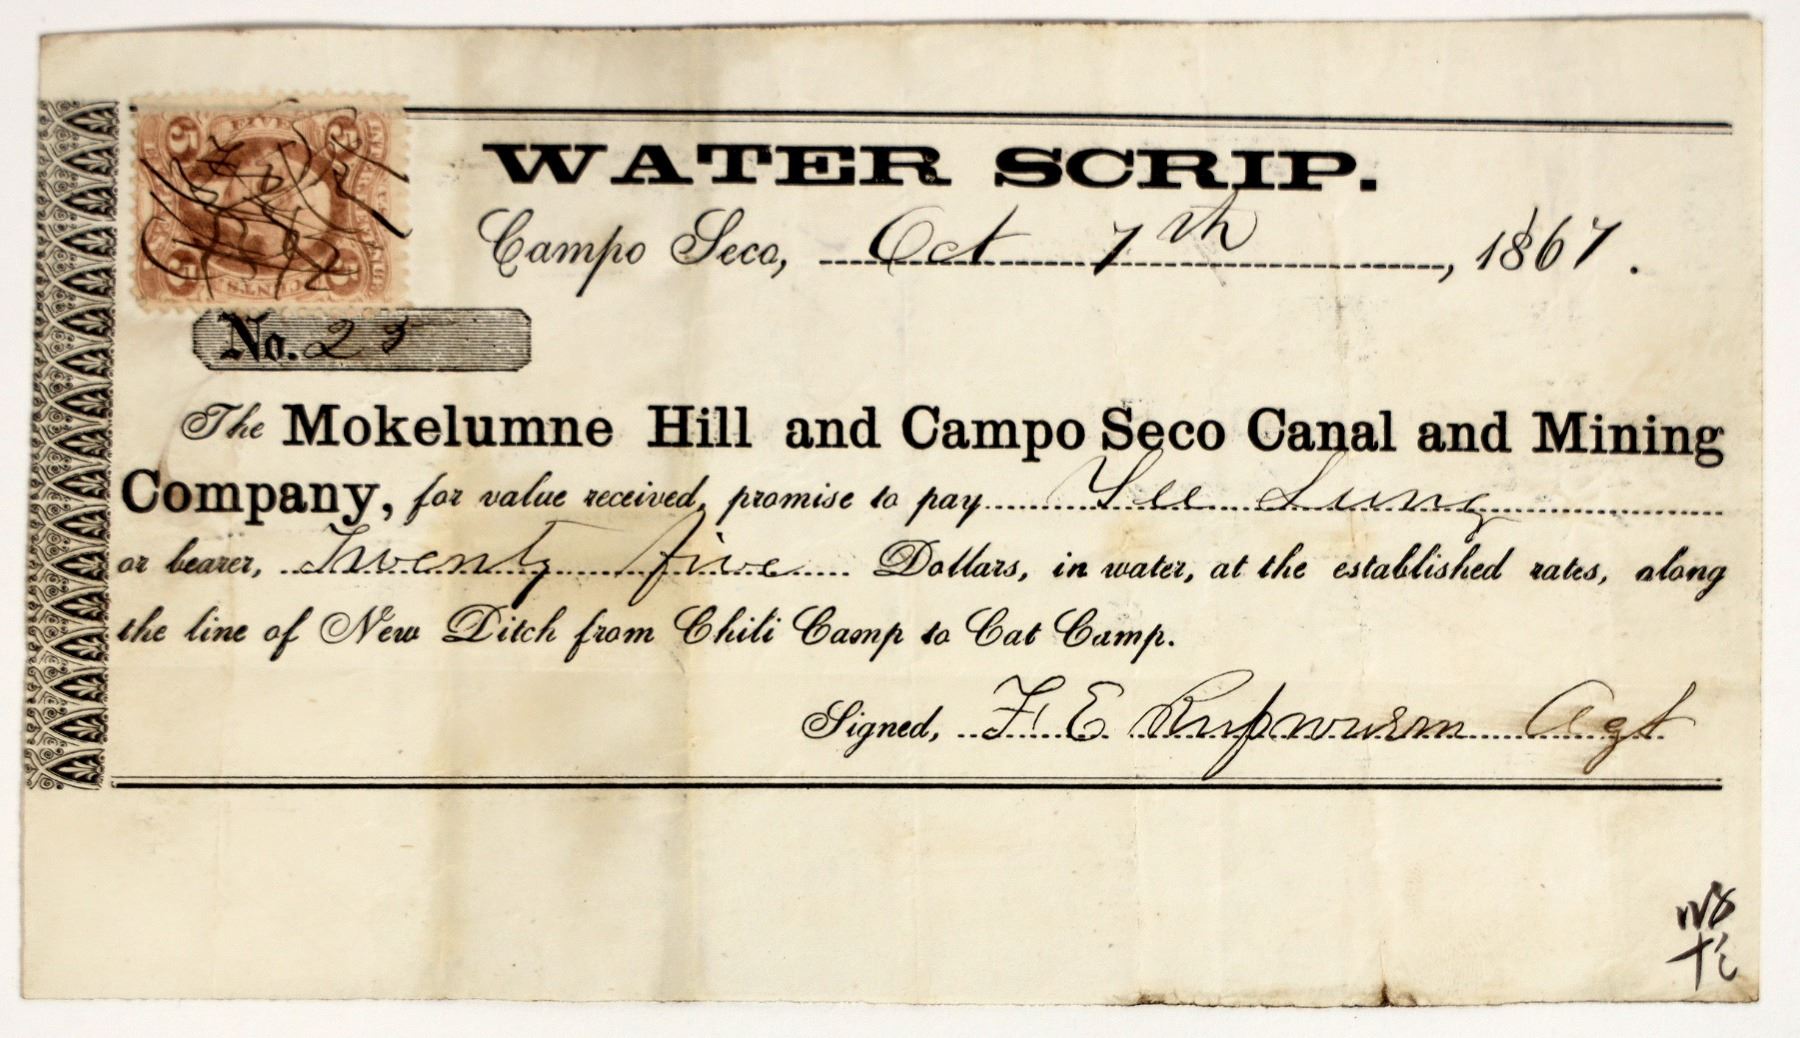 WATER SCRIP.
Campo Seco, Oct 7th, 1867.
FIVE
5 5
5 5
CENTS
No. 23
The Mokelumne Hill and Campo Seco Canal and Mining
Company, for value received, promise to pay Yee Lung
or bearer, Twenty five Dollars, in water, at the established rates, along
the line of New Ditch from Chili Camp to Cat Camp.
Signed, F. E. Agt